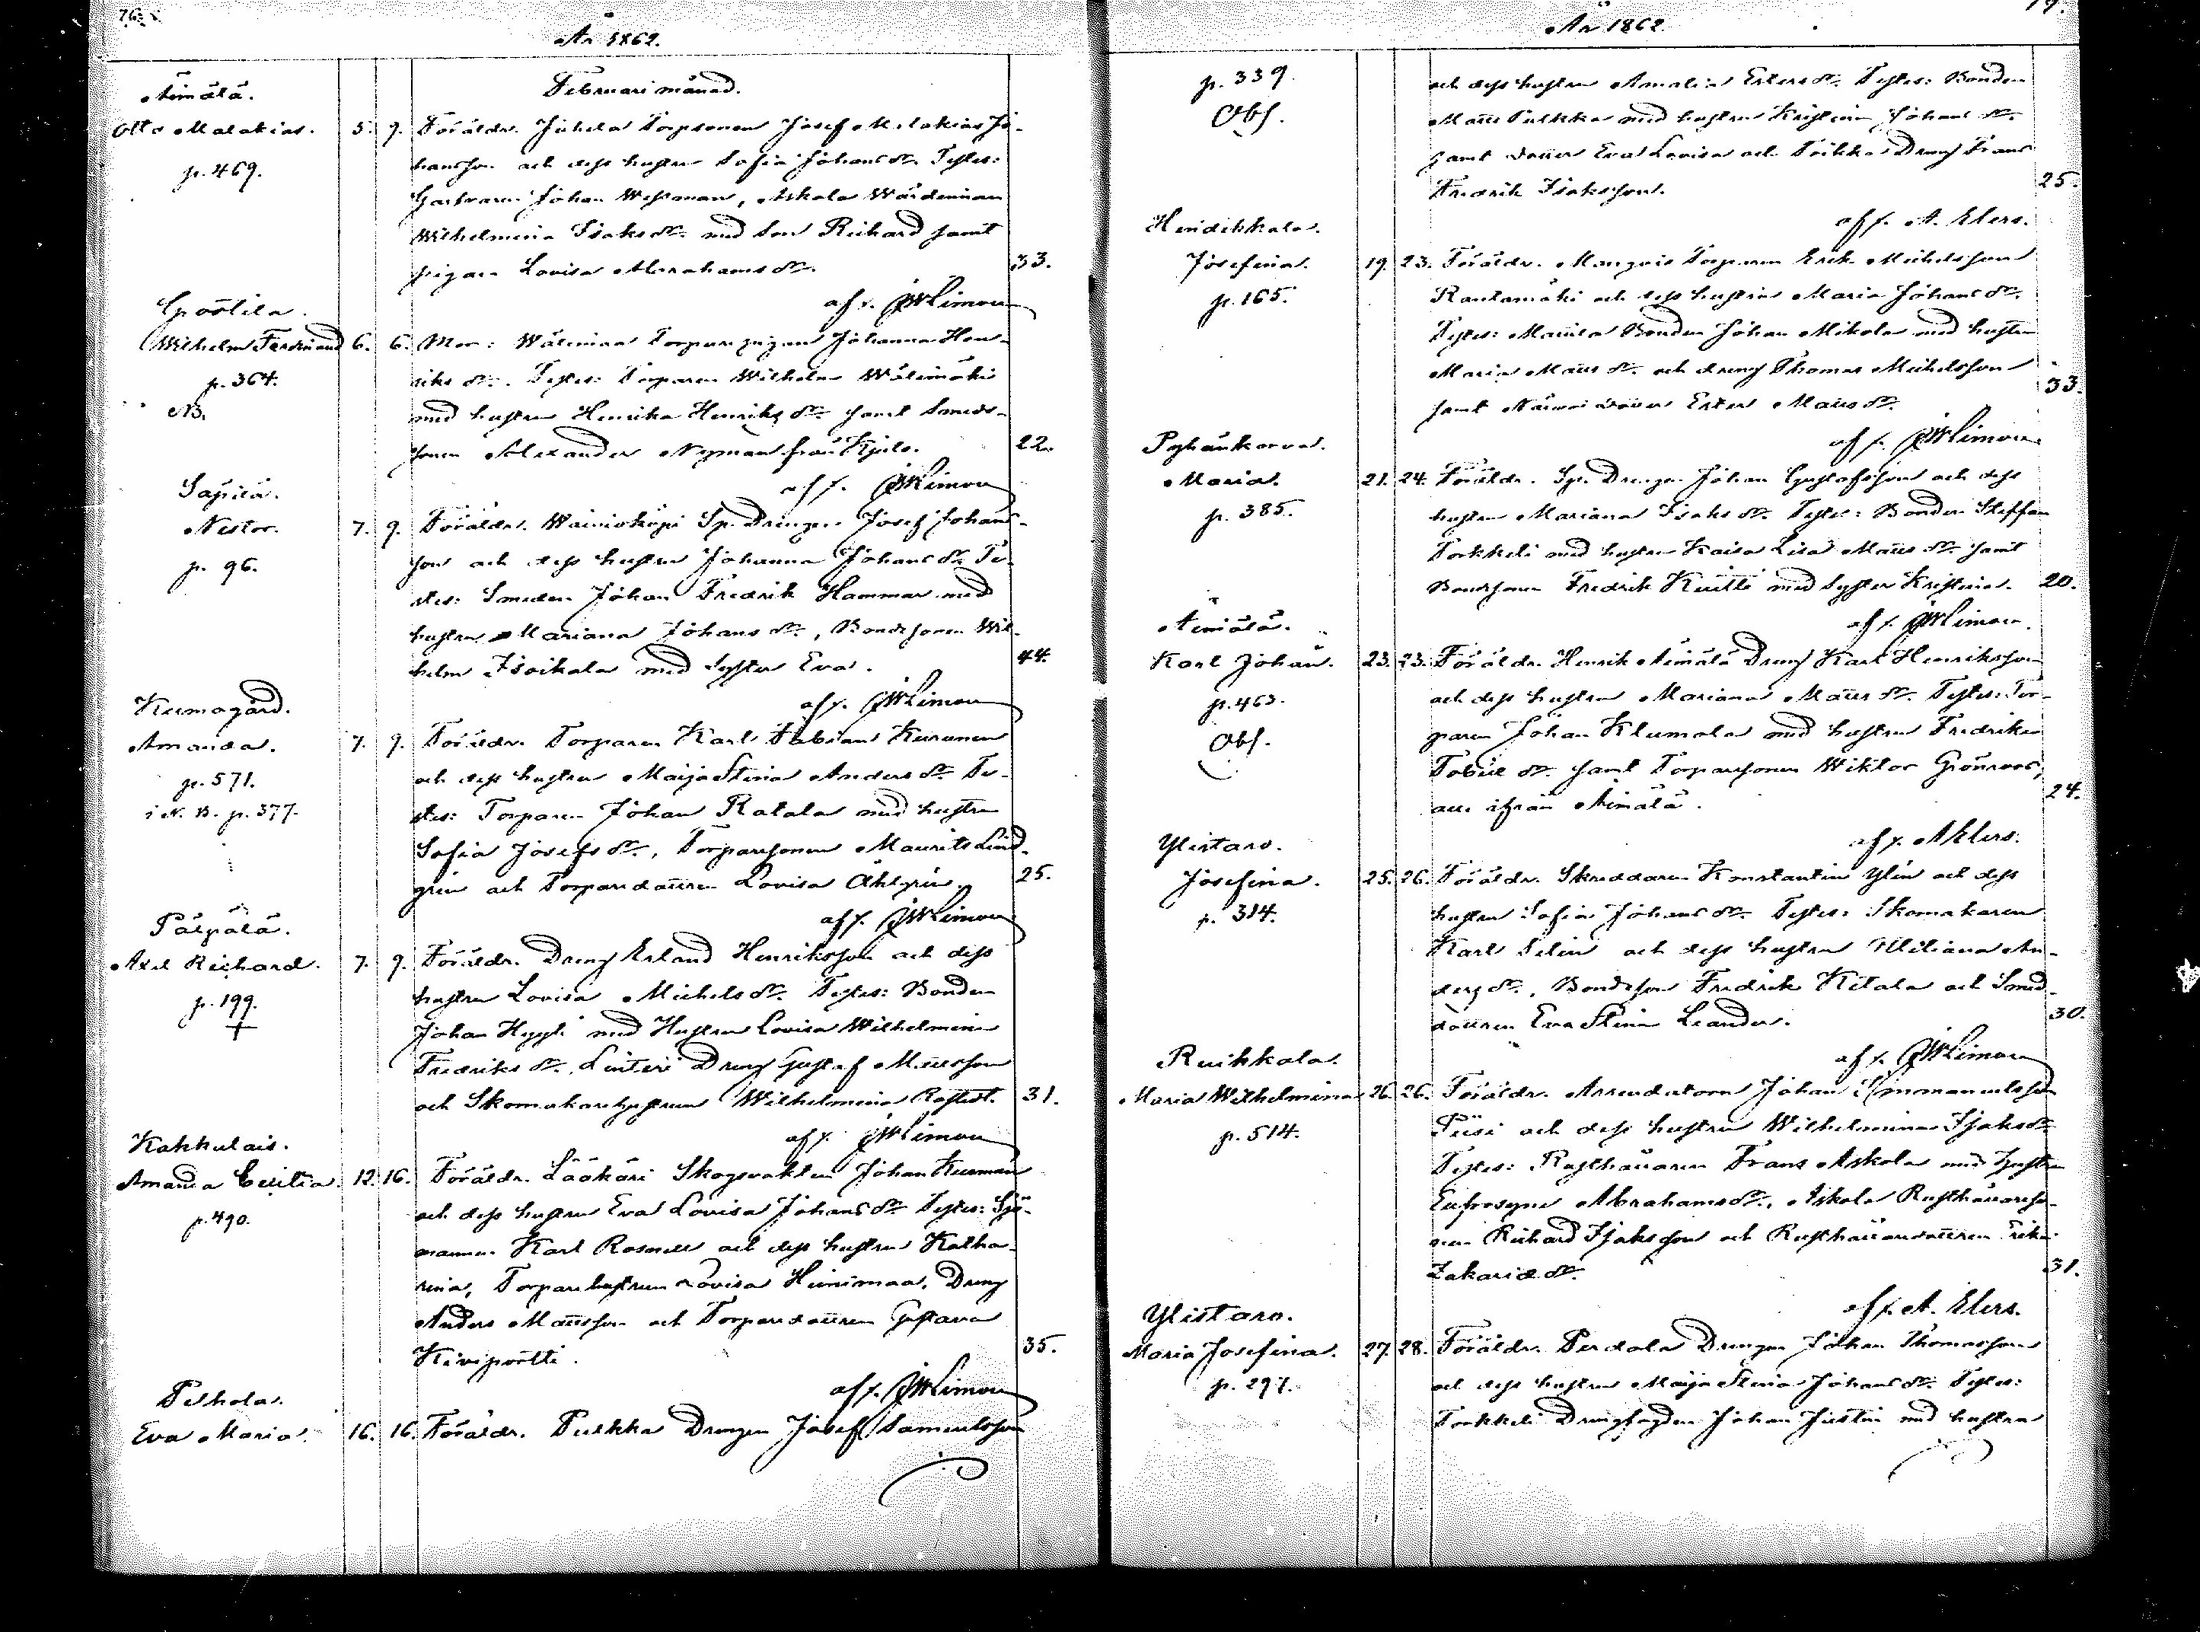 76.
År 1862.
Februari månad.
Äimälä.
Otto Malakias. 5. 9. Föräldr. Juhela Torpsonen Josef Malakias Jo-
p. 469.
hansson och dess hustru Sofia Johans dr. Testes:
Garfvaren Johan Westman, Askola Wärdinnan
Wilhelmina Isaks dr. med son Richard samt
pigan Lovisa Abrahams dr. 33.
af f. JWLimon
Gpöötilä.
Wilhelm Ferdinand 6. 6. Mor: Torparepigan Johanna Hen-
p. 364.
NB.
riks dr. Testes: Torparen Wilhelm Wälimäki
med hustru Henrika Henriks dr. samt Smeds-
sonen Alexander Nyman från Kjulo. 22.
af f. JWLimon
Säpilä.
Nestor. 7. 9. Föräldr. Sp. Drengen Josef Johans-
p. 96.
son och dess hustru Johanna Johans dr. Te-
stes: Smeden Johan Fredrik Hammar med
hustru Mariana Johans dr., Bondesonen Wil-
helm Isoikala med Syster Eva. 44.
af f. JWLimon
Keemagård.
Amanda. 7. 9. Föräldr. Torparen Karl Fabian
p. 571.
i N. B. p. 377.
och dess hustru Maija Stina Anders dr. Te-
stes: Torparen Johan Ratala med hustru
Sofia Josefs dr., Torparesonen Maurits Lind-
gren och Torparedottren Lovisa Åhlgren. 25.
af f. JWLimon
Pälpälä.
Axel Richard. 7. 9. Föräldr. Dreng Erland Henriksson och dess
p. 199.
+
hustru Lovisa Michels dr. Testes: Bonden
Johan Hyyti med Hustru Lovisa Wilhelmina
Fredriks dr., Dreng Gustaf Mattsson
och Skomakarehustrun Wilhelmina 31.
af f. JWLimon
Kakkulais.
Amanda Cecilia. 12. 16. Föräldr. Lääkäri Skogsvakten Johan
p. 490.
och dess hustru Eva Lovisa Johans dr. Testes: Sjö-
mannen Karl och dess hustru Katha-
rina, Torparehustrun Lovisa Hiinimaa, Dreng
Anders Mattsson och Torparedottren Gustava
Kivipöötti. 35.
af f. JWLimon
Pelhola.
Eva Maria. 16. 16. Föräldr. Pulkka Drengen Josef Samuelsson
År 1862.
p. 339.
Obs.
och dess hustru Amalia Esters dr. Testes: Bonden
Matts Pulkka med hustru Kristina Johans dr.
samt dotter Eva Lovisa och Dreng Frans
Fredrik Isaksson. 25.
af f. A. Elers.
Heindikkala.
Josefina. 19. 23. Föräldr. Torparen Erik Michelsson
p. 165.
Rautamäki och dess hustru Maria Johans dr.
Testes: Bonden Johan Mikola med hustru
Maria Matts dr. och dreng Thomas Michelsson
samt dotter Ester Matts dr. 33.
af f. JWLimon
Pyhänkorva.
Maria. 21. 24. Föräldr. Sp. Drengen Johan Gustafsson och dess
p. 385.
hustru Mariana Isaks dr. Testes: Bonden Steffan
Torkkeli med hustru Kaisa Lisa Matts dr. samt
Bondesonen Fredrik med Syster Kristina. 20.
af f. JWLimon.
Äimälä.
Karl Johan. 23. 23. Föräldr. Henrik Äimälä Dreng Karl Henriksson
p. 463.
Obs.
och dess hustru Mariana Matts dr. Testes: Tor-
paren Johan Klemola med hustru Fredrika
Tobie dr. samt Torparesonen Wiktor Grönroos,
alla ifrån Äimälä. 24.
af f. A Elers.
Ylistaro.
Josefina. 25. 26. Föräldr. Skreddaren Konstantin Ylén och dess
p. 314.
hustru Sofia Johans dr. Testes: Skomakaren
Karl Selin och dess hustru Uliana An-
ders dr., Bondeson Fredrik Ketala och Smed-
dottren Eva Stina Leander. 30.
af f. JWLimon
Ruikkala.
Maria Wilhelmina 26. 26. Föräldr. Arrendatorn Johan Emmanuelsson
p. 514.
och dess hustru Wilhelmina Isaks dr.
Testes: Rusthållaren Frans Askola med hustru
Eufrosyne Abrahams dr., Askola Rusthållareso-
nen Richard Isaksson och Rusthållaredottren Erika
Zakarie dr. 31.
af f. A. Elers.
Ylistaro.
Maria Josefina. 27. 28. Föräldr. Perdola Drengen Johan Thomasson
p. 297.
och dess hustru Maija Stina Johans dr. Testes:
Torkkeli Drengfogden Johan Justin med hustru